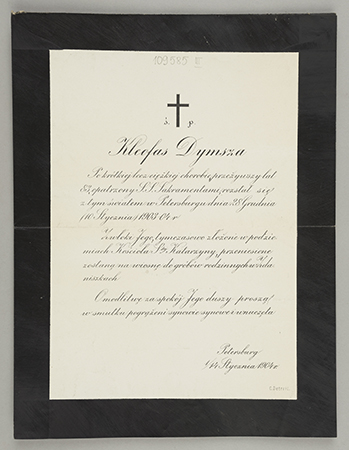 109525 II
ś. p.
Kleofas Dymsza
Po krótkiej lecz ciężkiej chorobie, przeżywszy lat
83, opatrzony S.S. Sakramentami, rozstał się
z tym światem w Petersburgu dnia 28 Grudnia
(10 Stycznia) 1903-04 r.
Zwłoki Jego, tymczasowo złożone w podzie-
miach Kościoła Św. Katarzyny, przeniesione
zostaną na wiosnę do grobów rodzinnych w
niszkach
O modlitwę za spokój Jego duszy proszą
w smutku pogrążeni synowie synowe i wnuczęta
Petersburg
1/14 Stycznia 1904 r.